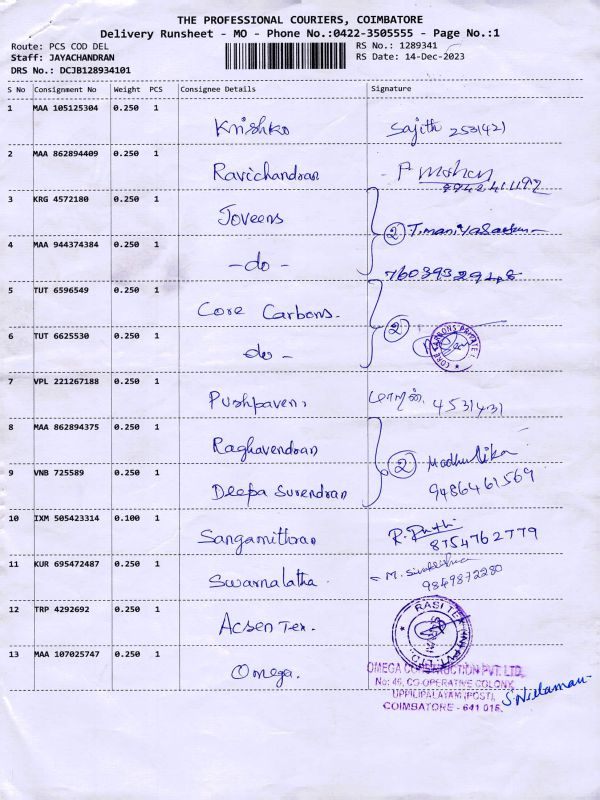 THE PROFESSIONAL COURIERS, COIMBATORE
Delivery Runsheet - MO - Phone No.:0422-3505555 - Page No.:1
Route: PCS COD DEL RS No.: 1289341
Staff: JAYACHANDRAN RS Date: 14-Dec-2023
DRS No.: DCJB128934101
S No Consignment No Weight PCS Consignee Details Signature
1 MAA 105125304 0.250 1
Krishko Sajith 2531421
2 MAA 862894409 0.250 1
Ravichandran P mohan
3 KRG 4572180 0.250 1
Joveens 2
4 MAA 944374384 0.250 1
- do -
5 TUT 6596549 0.250 1
Core Carbons. 2
6 TUT 6625530 0.250 1 CORE CARBONS PRIVATE
do -
7 VPL 221267188 0.250 1
Pushpaven 4531431
8 MAA 862894375 0.250 1
Raghavendran 2 Madhulika
9 VNB 725589 0.250 1
Deepa Surendran 9486461569
10 IXM 505423314 0.100 1
Sangamithran 8754762779
11 KUR 695472487 0.250 1
Swarnalatha. 9849872280
12 TRP 4292692 0.250 1 RASI TEX
Acsen Tex.
13 MAA 107025747 0.250 1
Omega. OMEGA CONSTRUCTION PVT. LTD.
No: 46, CO-OPERATIVE COLONY,
UPPILIPALAYAM (POST),
COIMBATORE - 641 015.